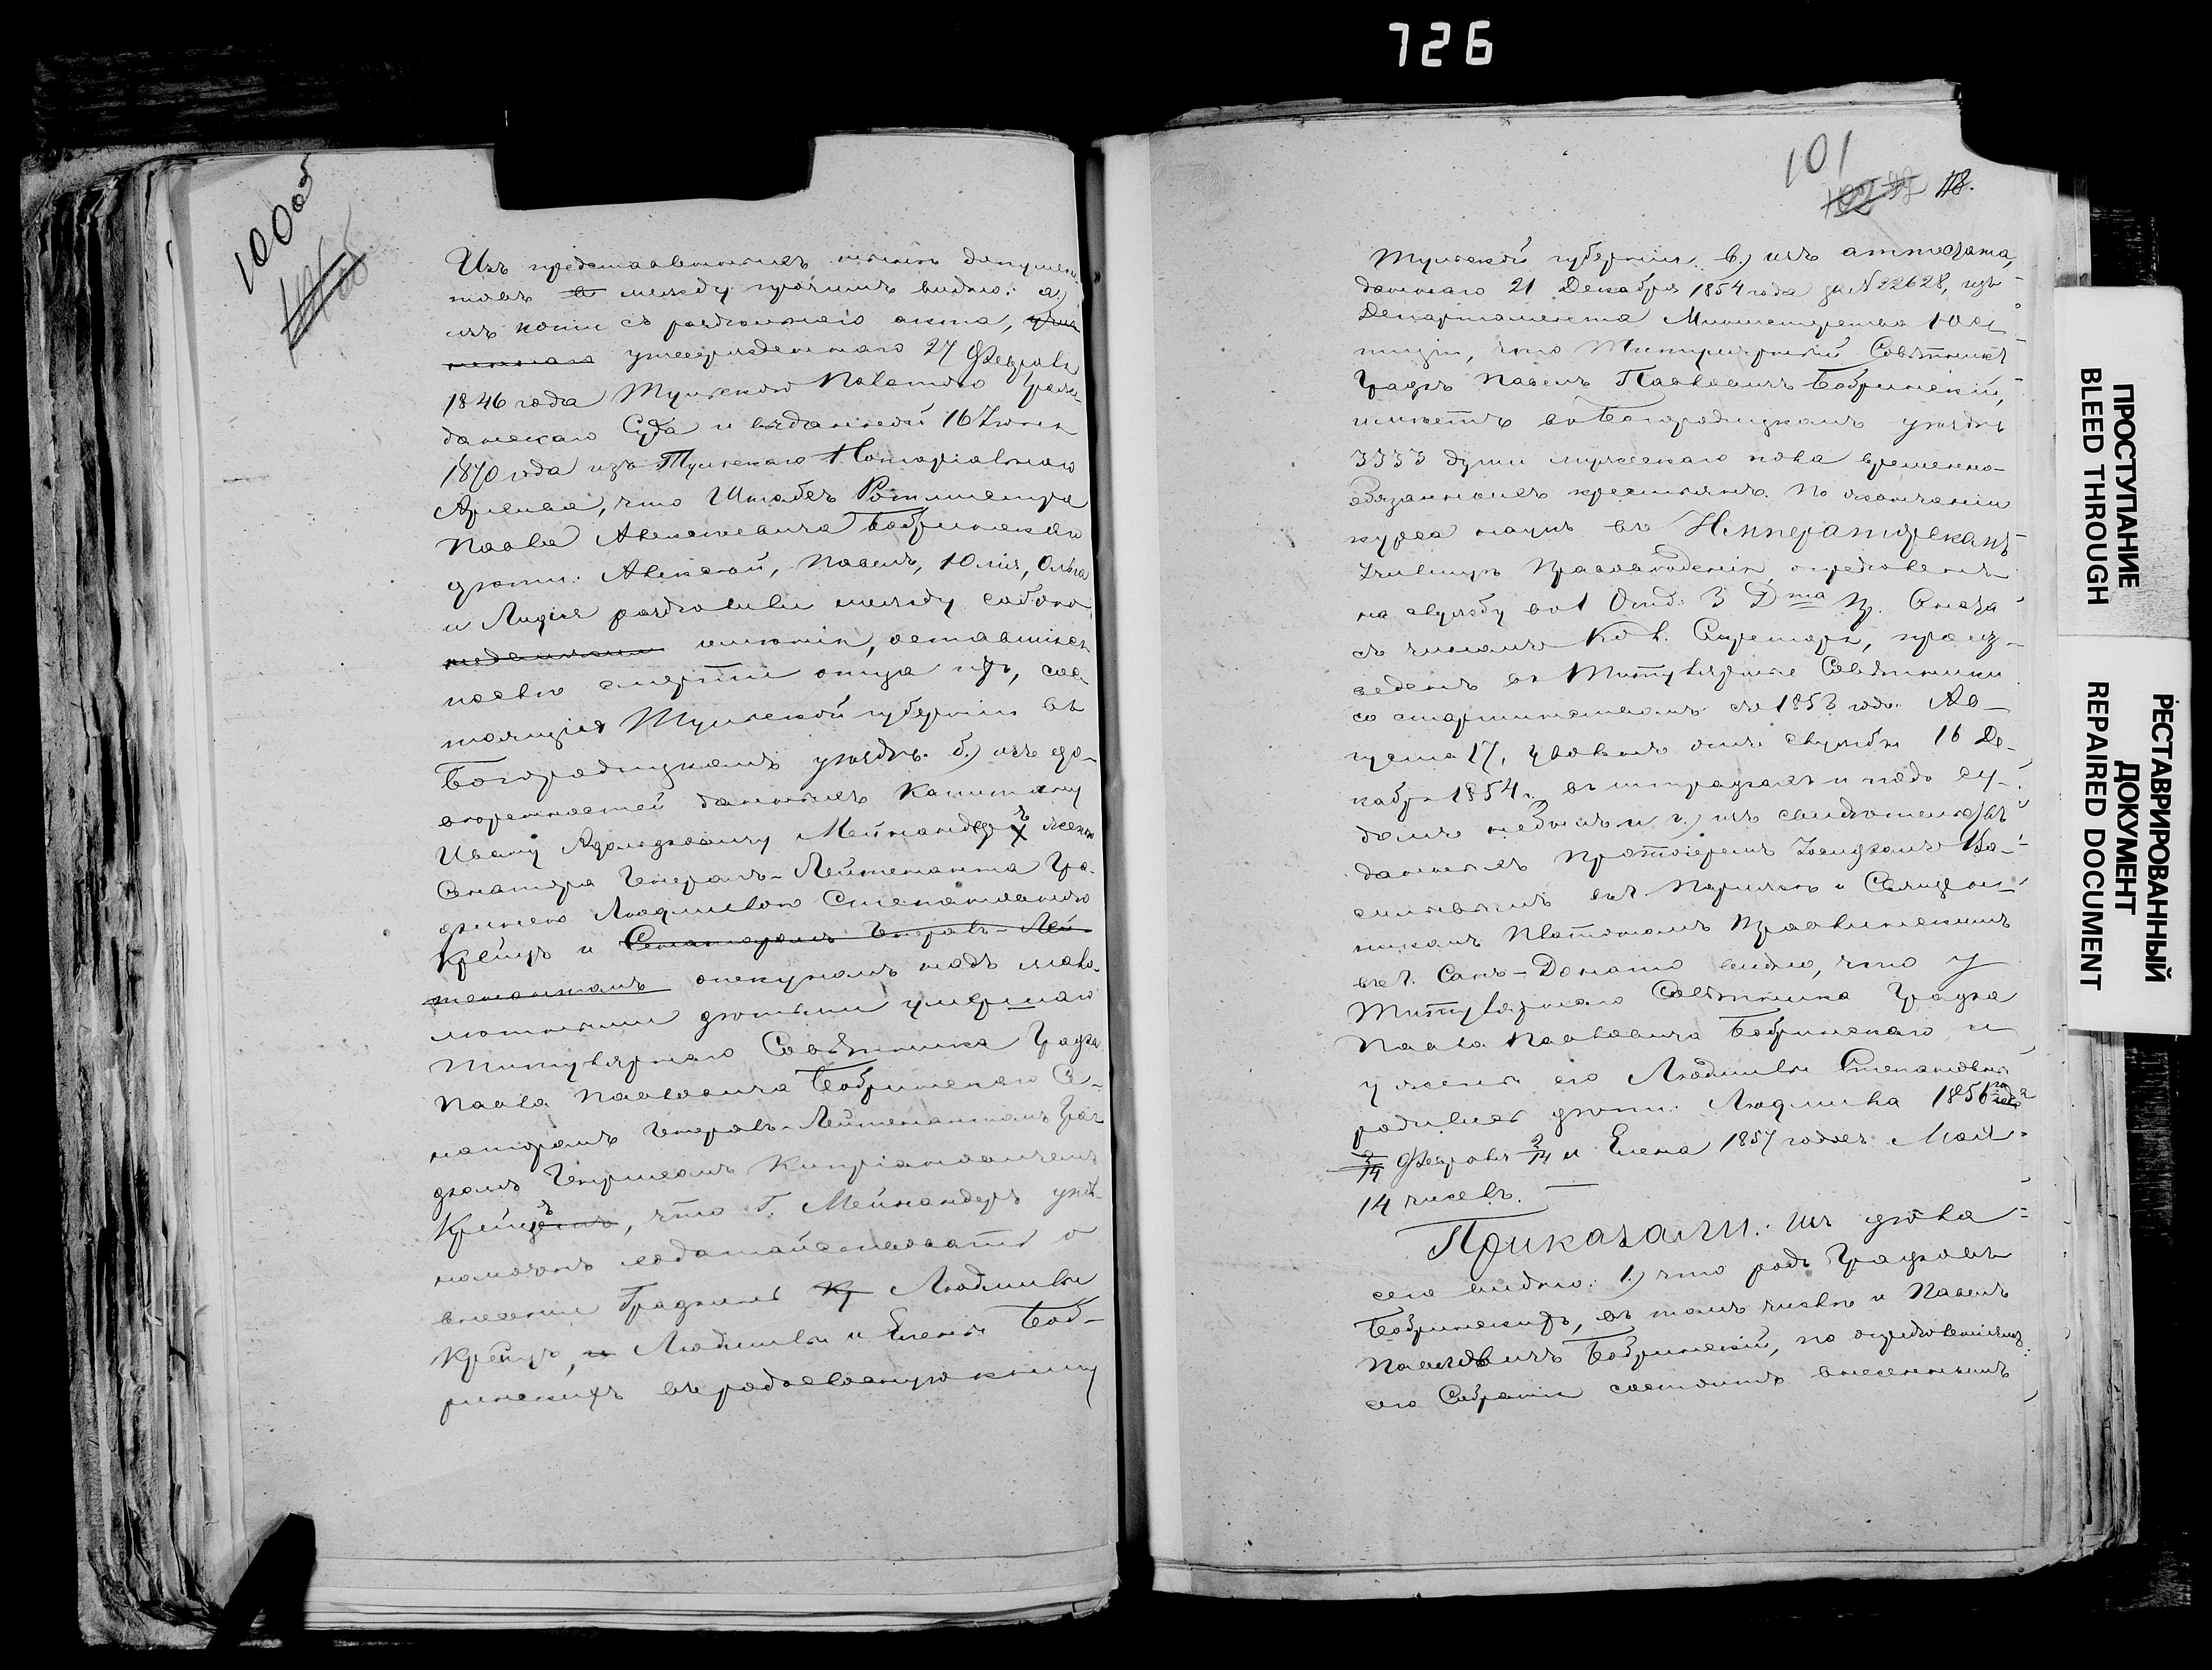 726
100 об
Изъ представленныхъ ними докумен-
товъ в между прочимъ видно: а.)
изъ копіи съ раздѣльнаго акта,
утвержденнаго 27 Февраля
1846 года Тульскою Палатою Граж-
данскаго Суда и выданной 16 Іюня
1870 года изъ Тульскаго Нотаріальнаго
Архива, что Штабъ Ротмистра
Павла Алексѣевича Бобринскаго
дѣти: Алексѣй, Павелъ, Юлія, Ольга
и Лидія раздѣлили между собою
имѣнія, оставшіяся
послѣ смерти отца ихъ, сос-
тоящія Тульской губерніи въ
Богородицкомъ уѣздѣ. б.) изъ до-
вѣренностей данныхъ Капитану
Ивану Адольфовичу Мейнандеръ женою
Сенатора Генералъ-Лейтенанта Гра-
финею Людмилою Степановною
Крейцъ и Сенаторомъ Генералъ-Лей-
тенантомъ опекуномъ надъ мало-
лѣтними дѣтьми умершаго
Титулярнаго Совѣтника Графа
Павла Павловича Бобринскаго Се-
наторомъ Генералъ-Лейтенантомъ Гра-
фомъ Генрихомъ Кипріановичемъ
Крейцъ, что Г. Мейнандеръ упол-
номоченъ ходатайствовать о
внесеніи Графини Кр Людмилы
Крейцъ, и Людмилы и Елены Боб-
ринскихъ въ родословную книгу
101
102 99 118.
Тульской губерніи. в.) изъ аттестата,
даннаго 21 Декабря 1854 года за № 22628, изъ
Департамента Министерства Юс-
тиціи, что Титулярный Совѣтникъ
Графъ Павелъ Павловичъ Бобринскій,
имѣетъ въ Богородицкомъ уѣздѣ
3333 души мужескаго пола временно-
обязанныхъ крестьянъ. По окончаніи
курса наукъ въ Императорскомъ
Училищѣ Правовѣденія опредѣленъ
на службу во 1 Отд: 3 Дта Пр. Сената
съ чиномъ Кол. Секретаря, произ-
веденъ въ Титулярные Совѣтники
со старшинствомъ съ 1853 года Ав-
густа 17, уволенъ отъ службы 16 Де-
кабря 1854 г. въ штрафахъ и подъ су-
домъ небылъ и г.) изъ свидѣтельствъ
данныхъ Протоіереемъ Іосифомъ Ва-
сильевымъ въ г. Парижѣ и Священ-
никомъ Платономъ
въ г. Санъ-Донато видно, что у
Титулярнаго Совѣтника Графа
Павла Павловича Бобринскаго и
у жены его Людмилы Степановны
родились дѣти: Людмила 1856 года
2/14 Февраля 2/14 и Елена 1857 годовъ Мая
14 числъ.
Приказали: изъ дѣла
сего видно: 1.) что родъ Графовъ
Бобринскихъ, въ томъ числѣ и Павелъ
Павловичъ Бобринскій, по опредѣленіямъ
сего Собранія состоитъ внесеннымъ
ПРОСТУПАНИЕ
BLED THROUGH
РЕСТАВРИРОВАННЫЙ
ДОКУМЕНТ
REPAIRED DOCUMENT